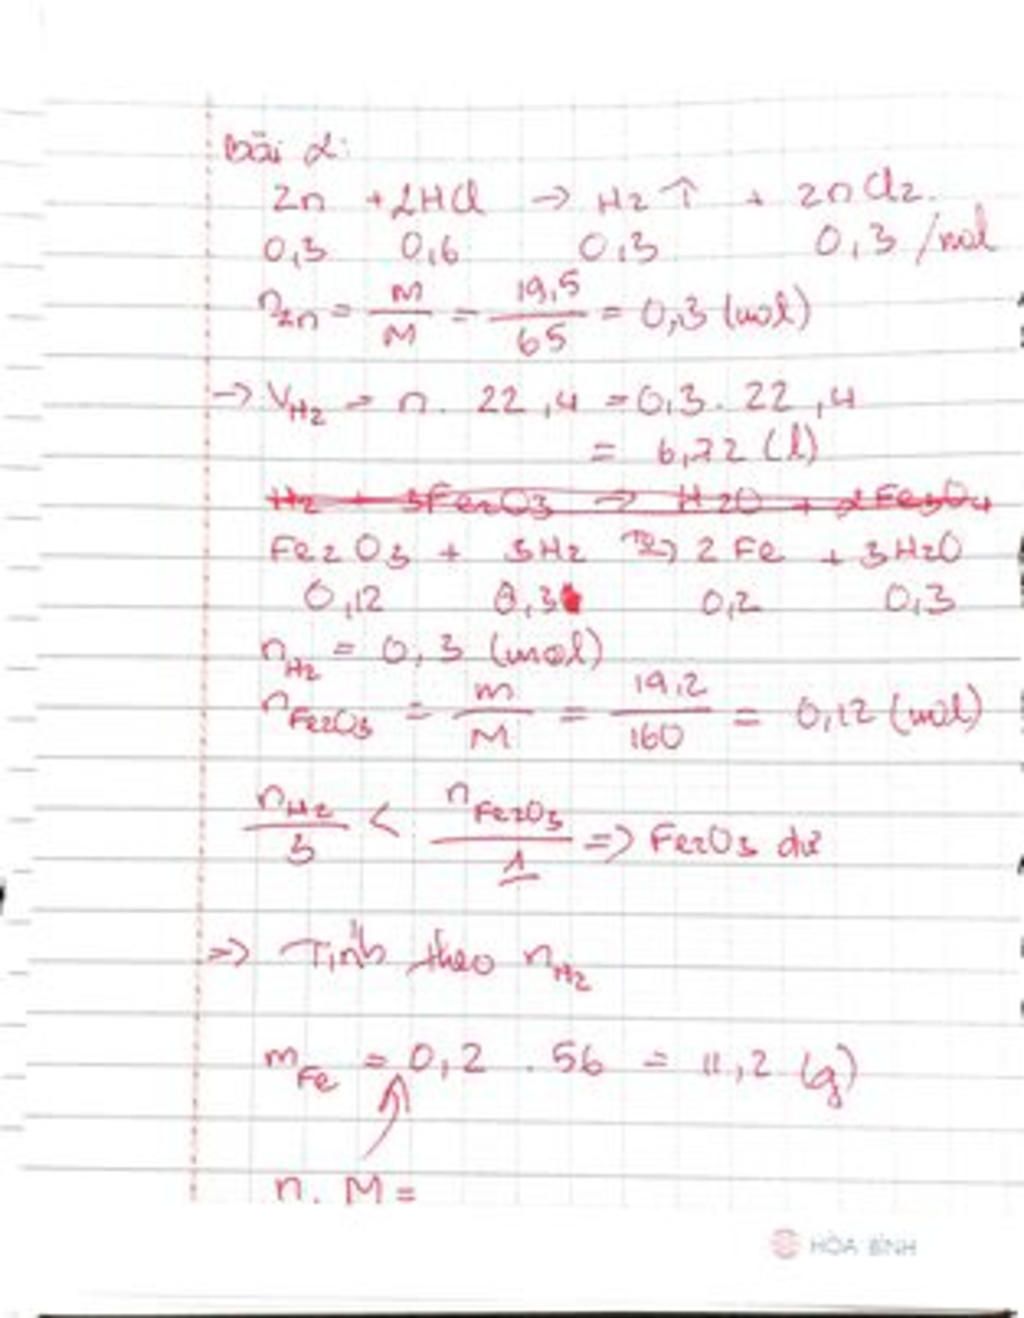 Bài 2:
Zn + 2HCl → H2 ↑ + ZnCl2.
0,3 0,6 0,3 0,3 /mol
nZn = m/M = 19,5/65 = 0,3 (mol)
→ VH2 = n. 22,4 = 0,3. 22,4
= 6,72 (l)
H2 + 3Fe2O3 → H2O + 2Fe3O4
Fe2O3 + 3H2 → 2Fe + 3H2O
0,12 0,3 0,2 0,3
nH2 = 0,3 (mol)
nFe2O3 = m/M = 19,2/160 = 0,12 (mol)
nH2/3 < nFe2O3/1 => Fe2O3 dư
=> Tính theo nH2
mFe = 0,2 . 56 = 11,2 (g)
n. M =
HÒA BÌNH